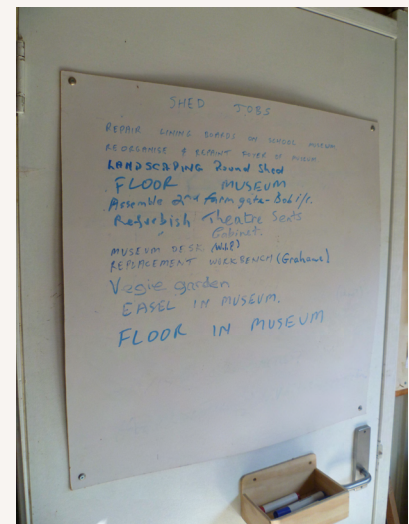 SHED JOBS
REPAIR LINING BOARDS IN SCHOOL MUSEUM
REORGANISE & REPAINT FOYER OF MUSEUM
LANDSCAPING Round Shed
FLOOR MUSEUM
Assemble 2nd farm gate - Bob
Referbish Theatre Seats
" Cabinet.
MUSEUM DESK
REPLACEMENT WORKBENCH (Grahame)
Vegie garden
EASEL IN MUSEUM.
FLOOR IN MUSEUM